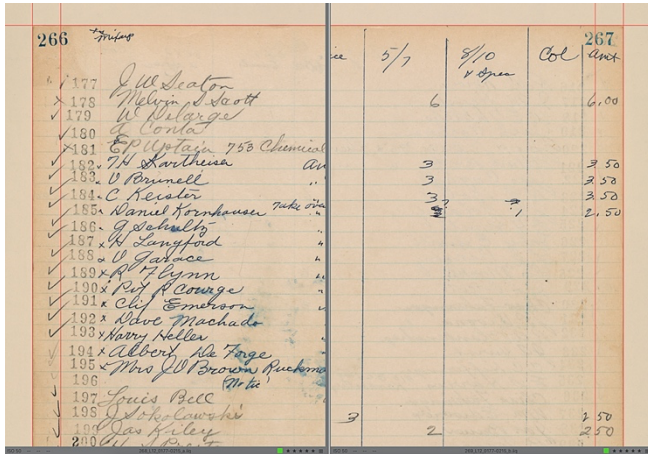 266
177 J W Seaton
178 Melvin S Scott
179 W Delarge
180 A Conta
181 E P Uptain 753 Chemical
182 T H Kartheiser
183 V Brunell
184 C Keister
185 Daniel Kornhauser Take over
186 G Schultz
187 H Langford
188 V Garace
189 R Flynn
190 Pvt R Courge
191 Clif Emerson
192 Dave Machado
193 Harry Heller
194 Albert De Forge
195 Mrs J O Brown Ruckma
196
197 Louis Bell
198 J Sokolowski
199 Jas Kiley
200
267
5/7 8/10 Col Amt
6 6.00
3 3.50
3 3.50
3 3.50
1 2.50
3 2 50
2 2 50